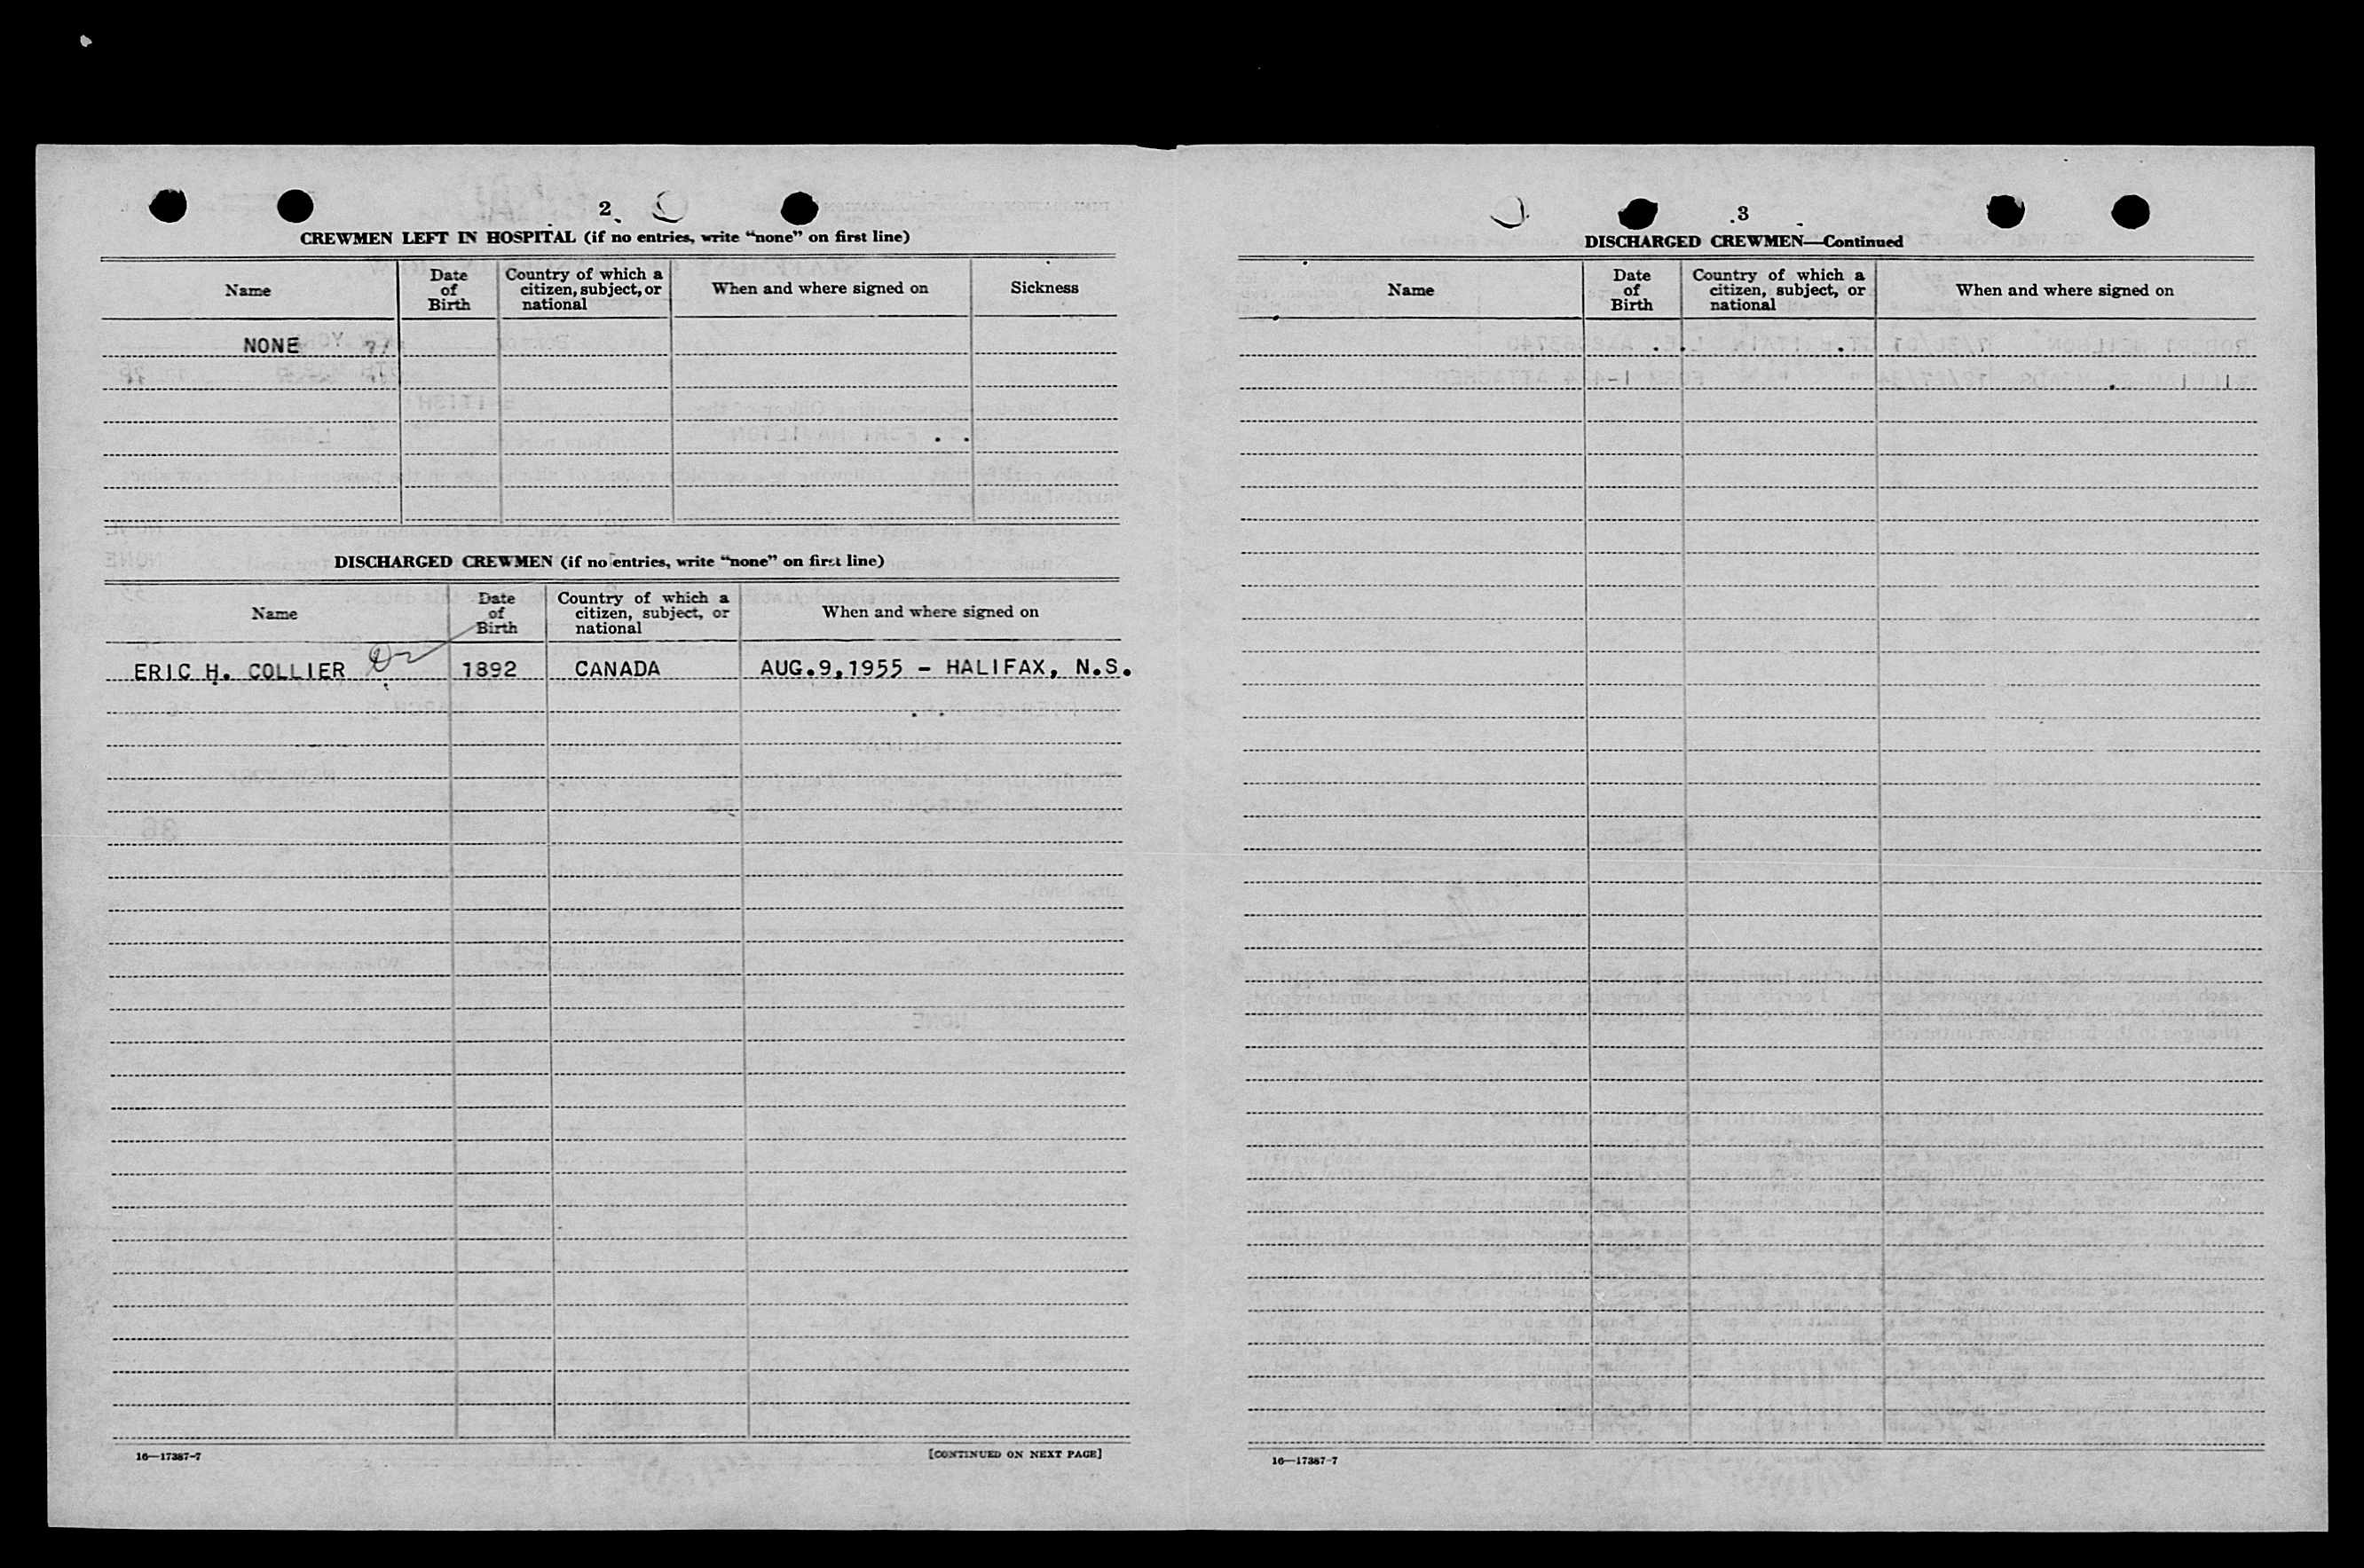 2
CREWMEN LEFT IN HOSPITAL (if no entries, write “none” on first line)
Name
Date of Birth
Country of which a citizen, subject, or national
When and where signed on
Sickness
NONE
DISCHARGED CREWMEN (if no entries, write “none” on first line)
Name
Date of Birth
Country of which a citizen, subject, or national
When and where signed on
ERIC H. COLLIER 1892 CANADA AUG.9,1955 – HALIFAX, N.S.
16—17387-7
[CONTINUED ON NEXT PAGE]
3
DISCHARGED CREWMEN—Continued
Name
Date of Birth
Country of which a citizen, subject, or national
When and where signed on
16—17387-7